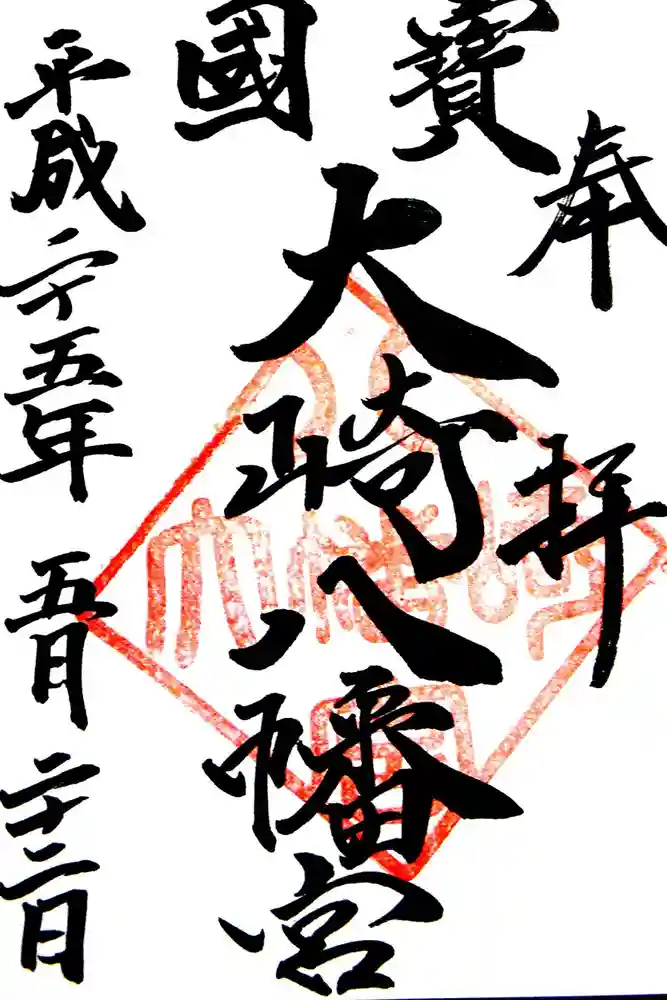 奉拝
國寶
大崎八幡宮
平成二十五年五月二十二日